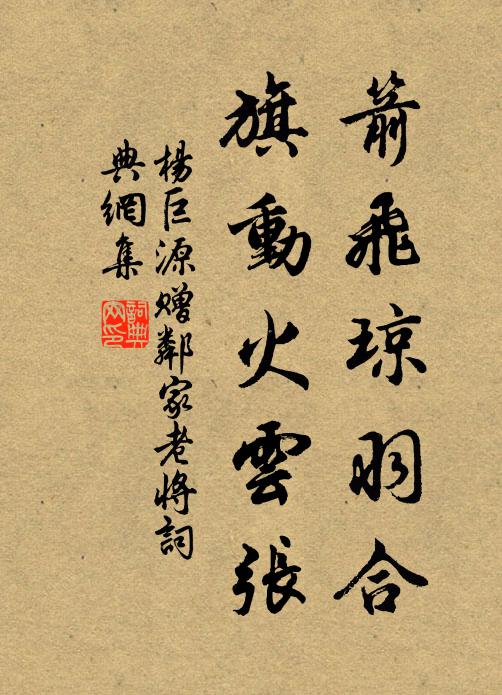 箭飛琼羽合
旗動火雲張
楊巨源赠鄰家老將詞
典網集
詞典
网印